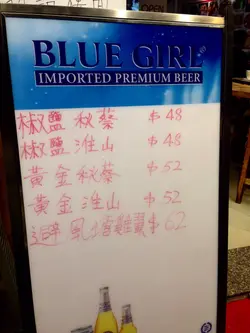 BLUE GIRL
IMPORTED PREMIUM BEER
椒鹽 秋葵 $48
椒鹽 淮山 $48
黃金秋葵 $52
黃金淮山 $52
避風塘雞翼 $62